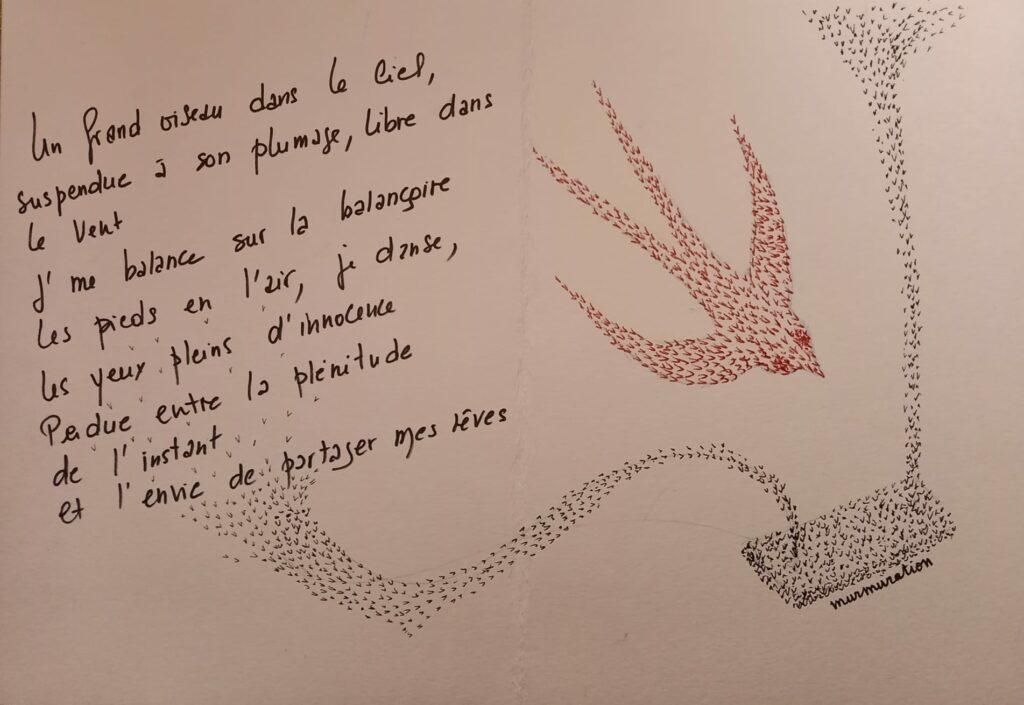 Un grand oiseau dans le ciel,
suspendue à son plumage, libre dans
le vent
J' me balance sur la balançoire
les pieds en l'air, je danse,
les yeux pleins d'innocence
Perdue entre la plénitude
de l'instant
et l'envie de partager mes rêves
murmuration